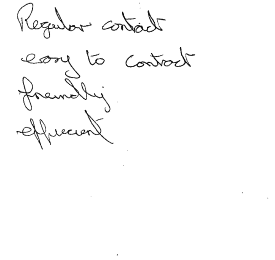 Regular contact
easy to contact
friendly
efficient